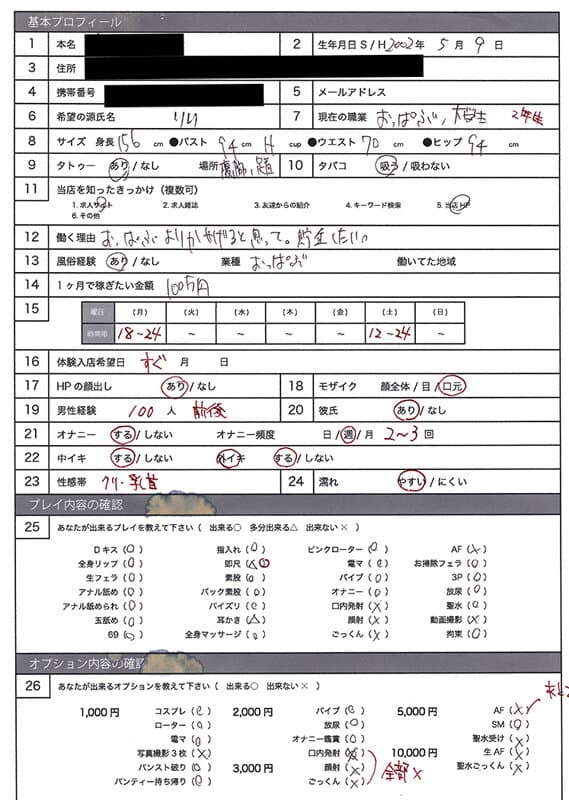 基本プロフィール
1 本名 2 生年月日 S / H 2002年 5月 9日
3 住所
4 携帯番号 5 メールアドレス
6 希望の源氏名 りり 7 現在の職業 おっぱぶ、大学生 2年生
8 サイズ 身長 156 cm ●バスト 94 cm H cup ●ウエスト 70 cm ●ヒップ 94 cm
9 タトゥー あり / なし 場所 10 タバコ 吸う / 吸わない
11 当店を知ったきっかけ（複数可）
1. 求人サイト 2. 求人雑誌 3. 友達からの紹介 4. キーワード検索 5. 当店HP
6. その他
12 働く理由 おっぱぶよりかせげると思って。貯金したい
13 風俗経験 あり / なし 業種 おっぱぶ 働いてた地域
14 1ヶ月で稼ぎたい金額 100万円
15 曜日 (月) (火) (水) (木) (金) (土) (日)
時間帯 18~24 ~ ~ ~ ~ 12~24 ~
16 体験入店希望日 すぐ 月 日
17 HPの顔出し あり / なし 18 モザイク 顔全体 / 目 / 口元
19 男性経験 100 人 前後 20 彼氏 あり / なし
21 オナニー する / しない オナニー頻度 日 / 週 / 月 2~3 回
22 中イキ する / しない 外イキ する / しない
23 性感帯 クリ・乳首 24 濡れ やすい / にくい
プレイ内容の確認
25 あなたが出来るプレイを教えて下さい（ 出来る○ 多分出来る△ 出来ない× ）
Dキス (○) 指入れ (○) ピンクローター (○) AF (×)
全身リップ (○) 即尺 (△○) 電マ (○) お掃除フェラ (○)
生フェラ (○) 素股 (○) バイブ (○) 3P (○)
アナル舐め (○) バック素股 (○) オナニー (○) 放尿 (○)
アナル舐められ (○) パイズリ (○) 口内発射 (×) 聖水 (○)
玉舐め (○) 耳かき (△) 顔射 (×) 動画撮影 (×)
69 (○) 全身マッサージ (○) ごっくん (×) 拘束 (○)
オプション内容の確認
26 あなたが出来るオプションを教えて下さい（ 出来る○ 出来ない× ）
1,000円 コスプレ (○) 2,000円 バイブ (○) 5,000円 AF (×)
ローター (○) 放尿 (○) SM (○)
電マ (○) オナニー鑑賞 (○) 聖水受け (×)
写真撮影3枚 (×) 口内発射 (×) 10,000円 生AF (×)
パンスト破り (○) 3,000円 顔射 (×) 全部× 聖水ごっくん (×)
パンティー持ち帰り (○) ごっくん (×)